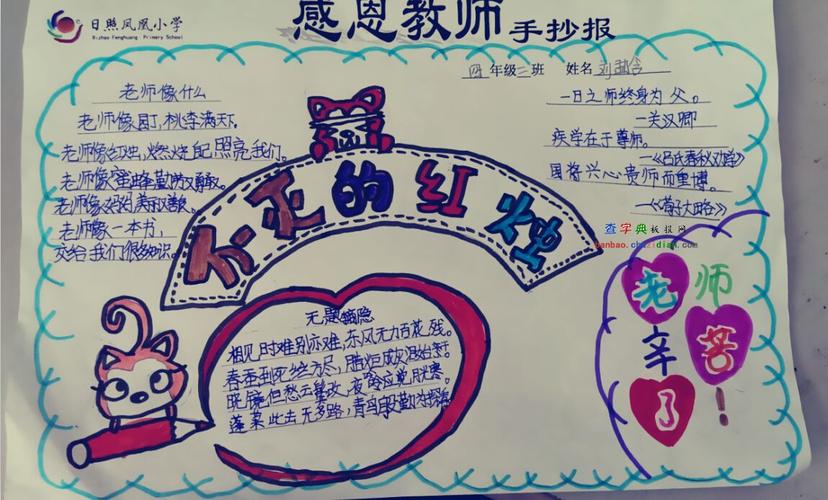 日照凤凰小学
Rizhao Fenghuang Primary School
感恩教师 手抄报
四年级二班 姓名
老师像什么
老师像园丁,桃李满天下。
老师像红烛,燃烧自己照亮我们。
老师像蜜蜂勤劳又勇敢。
老师像妈妈美丽又善良。
老师像一本书,
交给我们很多知识。
一日之师终身为父。
—关汉卿
疾学在于尊师。
—《吕氏春秋·劝学》
国将兴心贵师而重博。
—《荀子大略》
不灭的红烛
查字典板报网
banbao.chazidian.com
无题
相见时难别亦难,东风无力百花残。
春蚕到死丝方尽,腊炬成灰泪始干。
晓镜但愁云鬓改,夜吟应觉月光寒。
蓬莱此去无多路,青鸟殷勤为探看。
老师
辛苦
了!